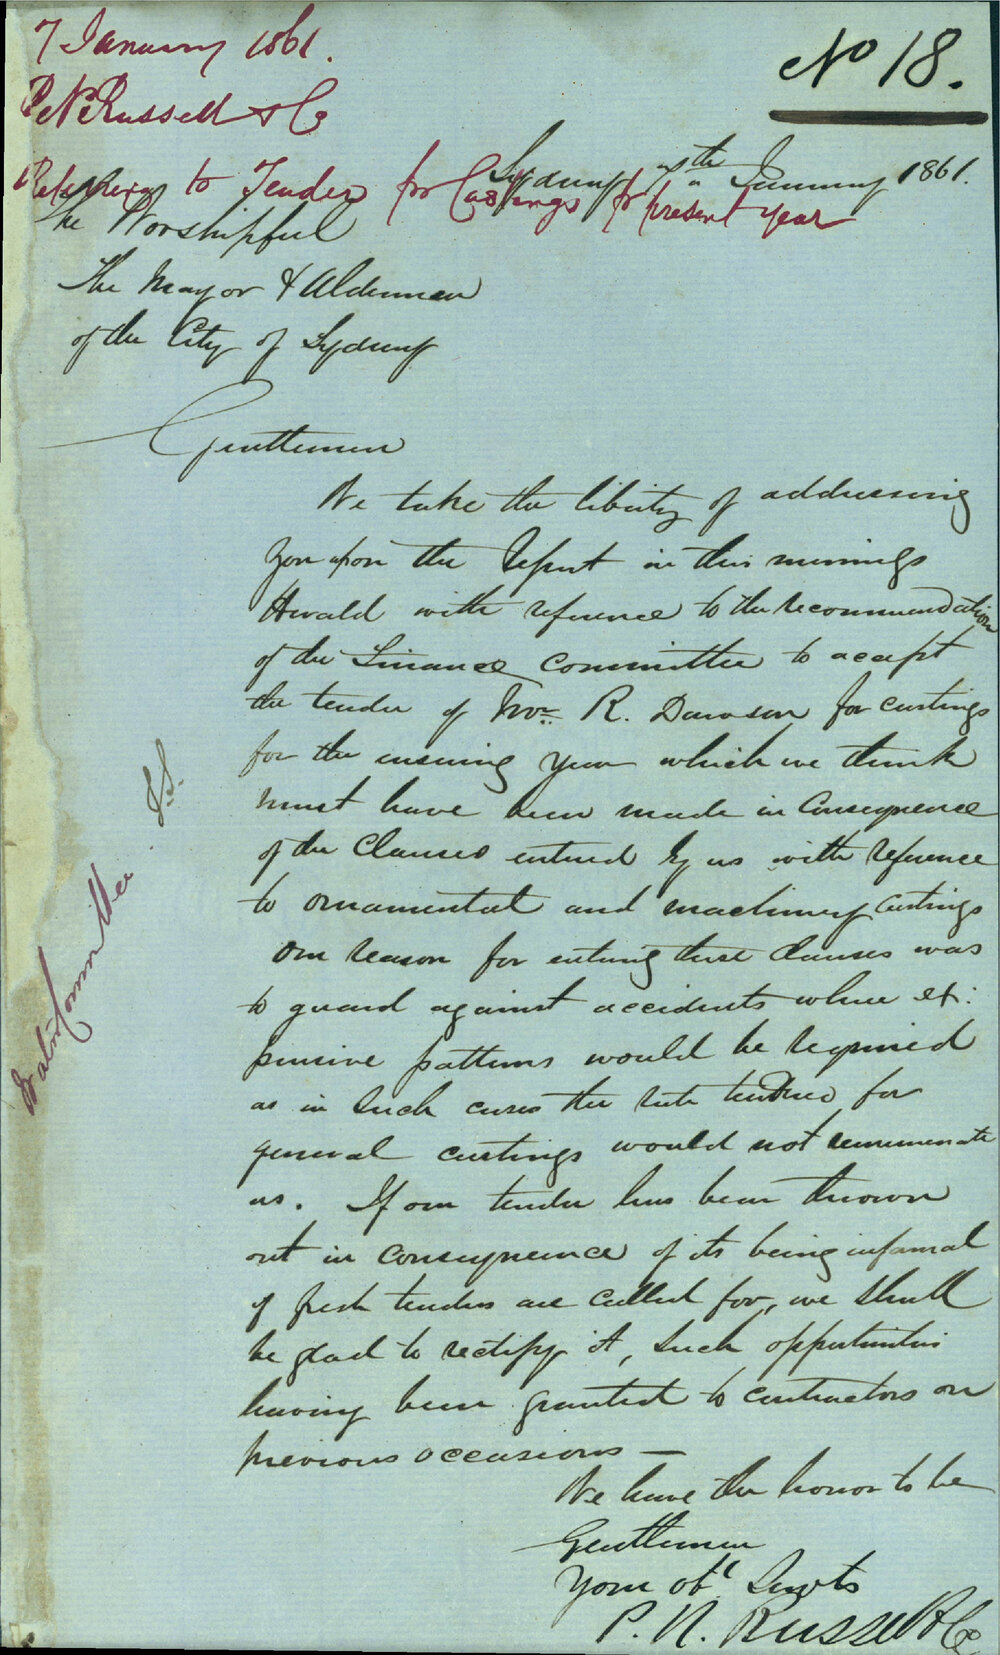 7 January 1861.
No 18.
P. N. Russell & Co
Sydney 7th January 1861.
Referring to Tender for Castings for present year
The Worshipful
The Mayor & Aldermen
of the City of Sydney
Gentlemen
We take the liberty of addressing
you upon the Report in this mornings
Herald with reference to the recommendation
of the Finance Committee to accept
the tender of Mr. R. Dawson for castings
for the ensuing year which we think
must have been made in Consequence
of the Clauses entered by us with reference
to ornamental and machinery Castings
Our reason for entering these Clauses was
to guard against accidents where ex:
pensive patterns would be required
as in such cases the rate tendered for
general castings would not remunerate
us. If our tender has been thrown
out in Consequence of its being informal
if fresh tenders are called for, we shall
be glad to rectify it, such opportunities
having been granted to contractors on
previous occasions —
We have the honor to be
Gentlemen
Your obt Servts
P. N. Russell & Co
Water Committee